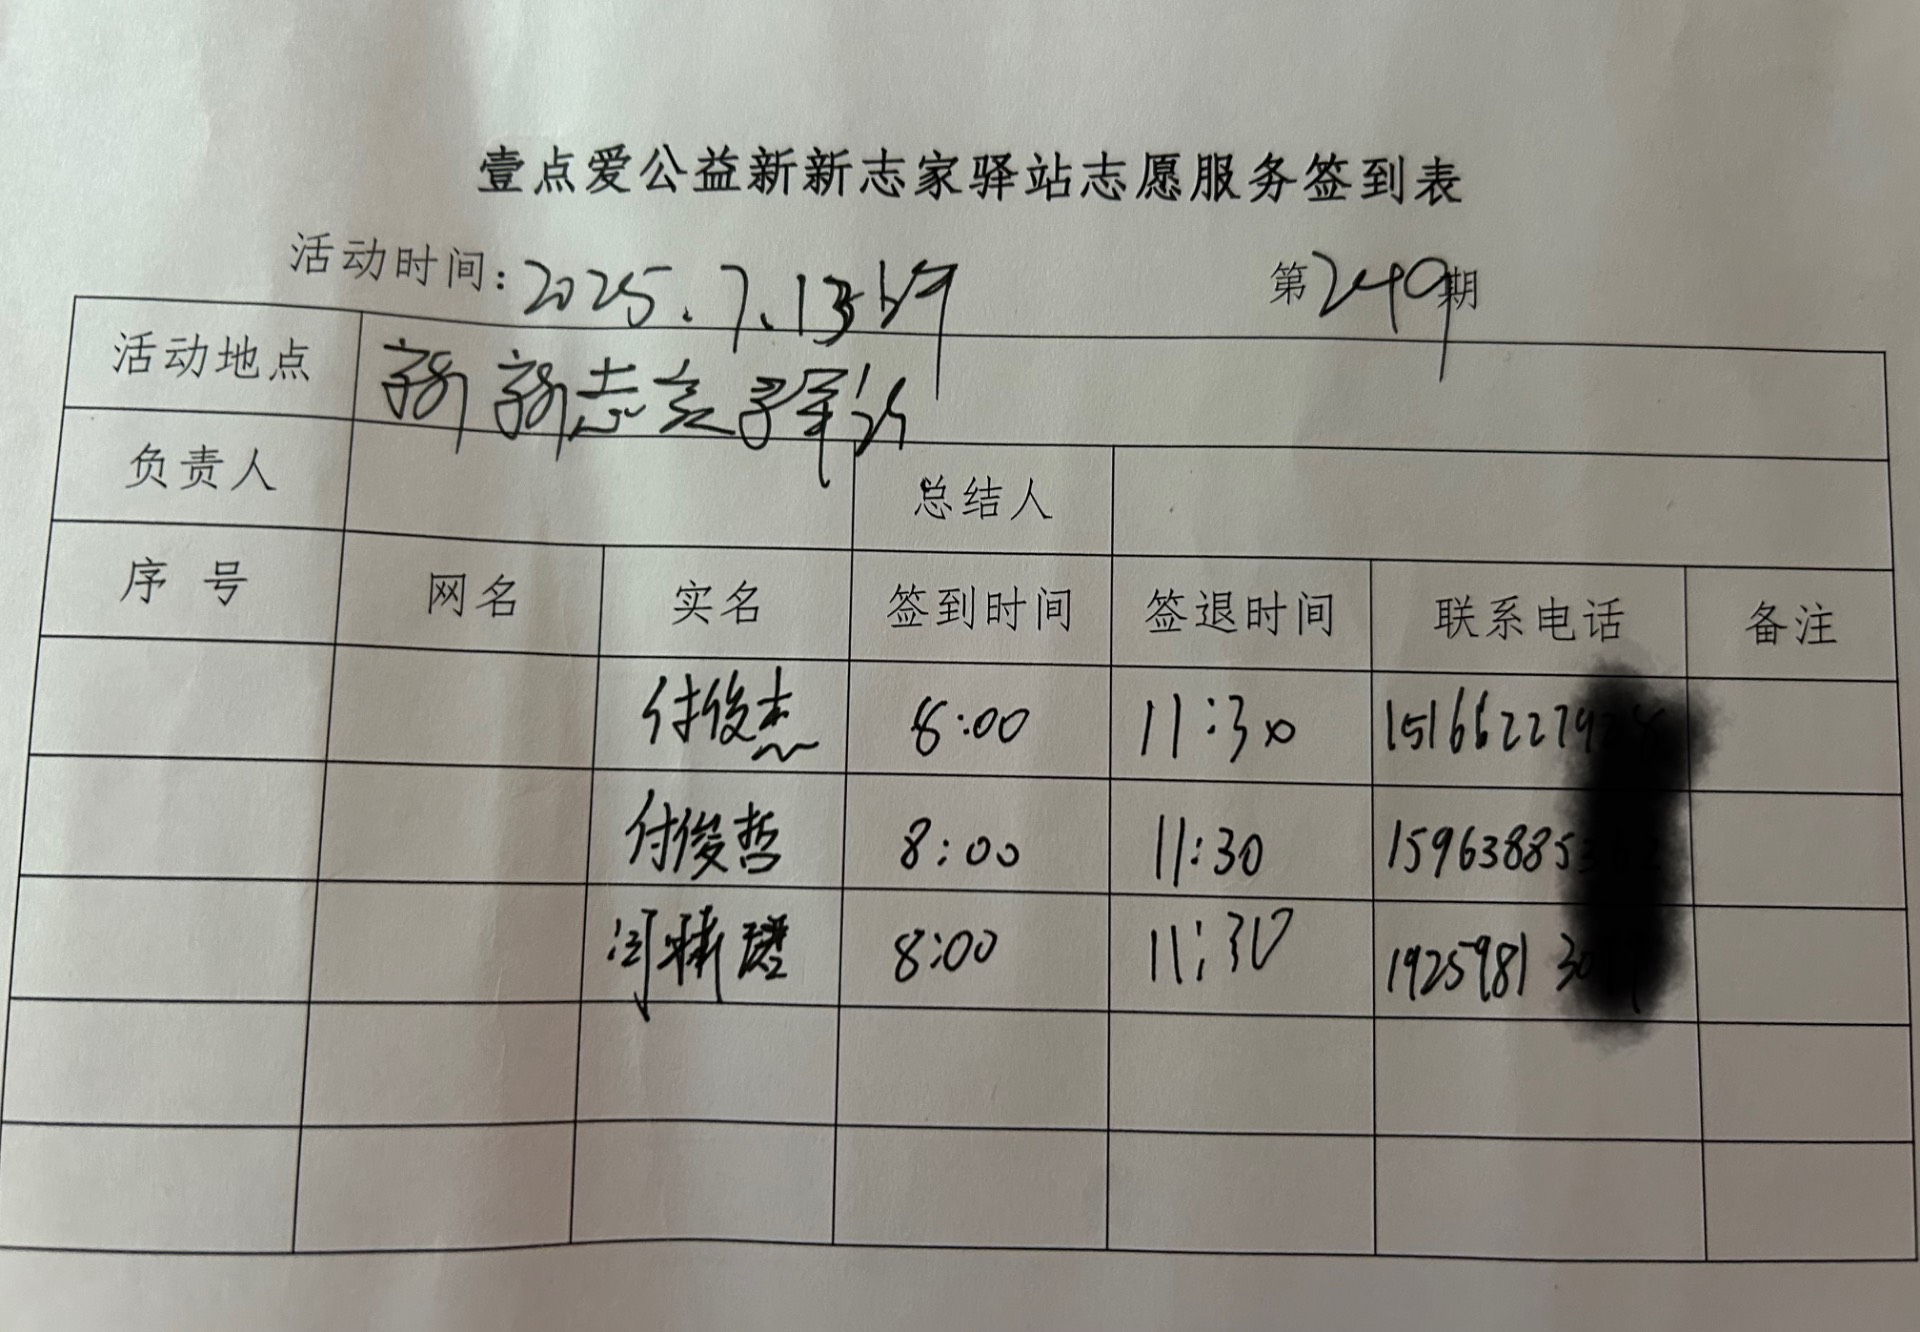 壹点爱公益新新志家驿站志愿服务签到表
活动时间：2025.7.13 第249期
活动地点 新新志家驿站
负责人 总结人
序号 网名 实名 签到时间 签退时间 联系电话 备注
付俊杰 8:00 11:30 151662279
付俊哲 8:00 11:30 15963885
8:00 11:30 1925981